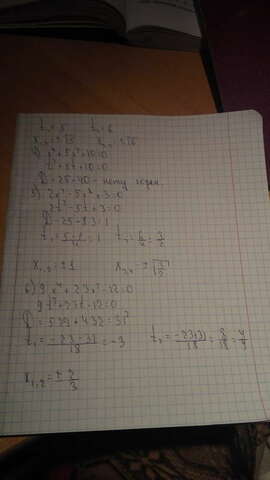 t₁=5 t₂=6
x₁,₂=±√5 x₃,₄=±√6
x⁴+5x²+10=0
t²+5t+10=0
D=25-40 - нету
5) 2x⁴-5x²+3=0
2t²-5t+3=0
D=25-
t₁=5-1/4=1 t₂=6/4=3/2
x₁,₂=±1 x₃,₄=±√3/2
6) 9x⁴+23x²-12=0
9t²+23t-12=0
D=529+432=31²
t₁=-23-31/18=-3 t₂=-23+31/18=8/18=4/9
x₁,₂=±2/3